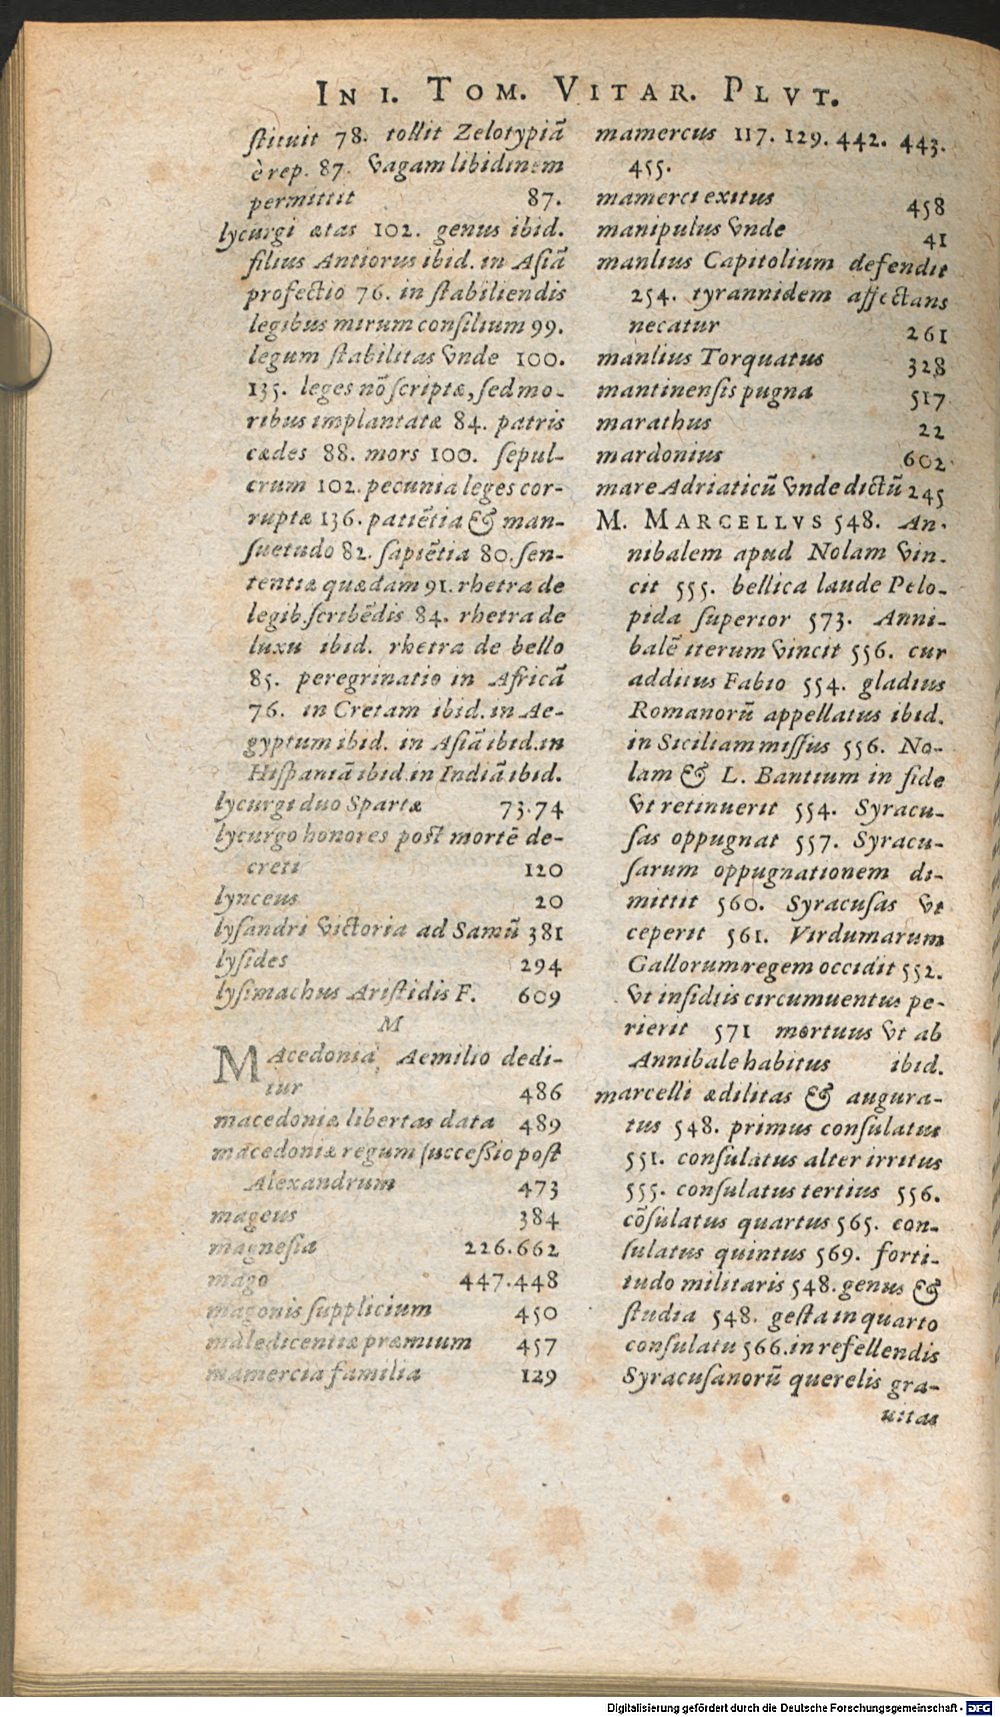 IN I. TOM. VITAR. PLVT.
ſtituit 78. tollit Zelotypiā
è rep. 87. vagam libidinem
permittit 87.
lycurgi ætas 102. genus ibid.
filius Antiorus ibid. in Aſiā
profectio 76. in ſtabiliendis
legibus mirum conſilium 99.
legum ſtabilitas vnde 100.
135. leges nō ſcriptæ, ſed mo-
ribus implantatæ 84. patris
cædes 88. mors 100. ſepul-
crum 102. pecunia leges cor-
ruptæ 136. patiētia & man-
ſuetudo 82. ſapiētia 80. ſen-
tentiæ quædam 91. rhetra de
legib. ſcribēdis 84. rhetra de
luxu ibid. rhetra de bello
85. peregrinatio in Africā
76. in Cretam ibid. in Ae-
gyptum ibid. in Aſiā ibid. in
Hiſpaniā ibid. in Indiā ibid.
lycurgi duo Spartæ 73.74
lycurgo honores poſt mortē de-
creti 120
lynceus 20
lyſandri victoria ad Samū 381
lyſides 294
lyſimachus Ariſtidis F. 609
M
MAcedonia Aemilio dedi-
tur 486
macedoniæ libertas data 489
macedoniæ regum ſucceſſio poſt
Alexandrum 473
mageus 384
magneſia 226.662
mago 447.448
magonis ſupplicium 450
maledicentiæ præmium 457
mamercia familia 129
mamercus 117. 129. 442. 443.
455.
mamerci exitus 458
manipulus vnde 41
manlius Capitolium defendit
254. tyrannidem affectans
necatur 261
manlius Torquatus 328
mantinenſis pugna 517
marathus 22
mardonius 602
mare Adriaticū vnde dictū 245
M. MARCELLVS 548. An-
nibalem apud Nolam vin-
cit 555. bellica laude Pelo-
pida ſuperior 573. Anni-
balē iterum vincit 556. cur
additus Fabio 554. gladius
Romanorū appellatus ibid.
in Siciliam miſſus 556. No-
lam & L. Bantium in fide
vt retinuerit 554. Syracu-
ſas oppugnat 557. Syracu-
ſarum oppugnationem di-
mittit 560. Syracuſas vt
ceperit 561. Virdumarum
Gallorum regem occidit 552.
vt inſidiis circumuentus pe-
rierit 571 mortuus vt ab
Annibale habitus ibid.
marcelli ædilitas & augura-
tus 548. primus conſulatus
551. conſulatus alter irritus
555. conſulatus tertius 556.
cōſulatus quartus 565. con-
ſulatus quintus 569. forti-
tudo militaris 548. genus &
ſtudia 548. geſta in quarto
conſulatu 566. in refellendis
Syracuſanorū querelis gra-
uitas
Digitalisierung gefördert durch die Deutsche Forschungsgemeinschaft - DFG